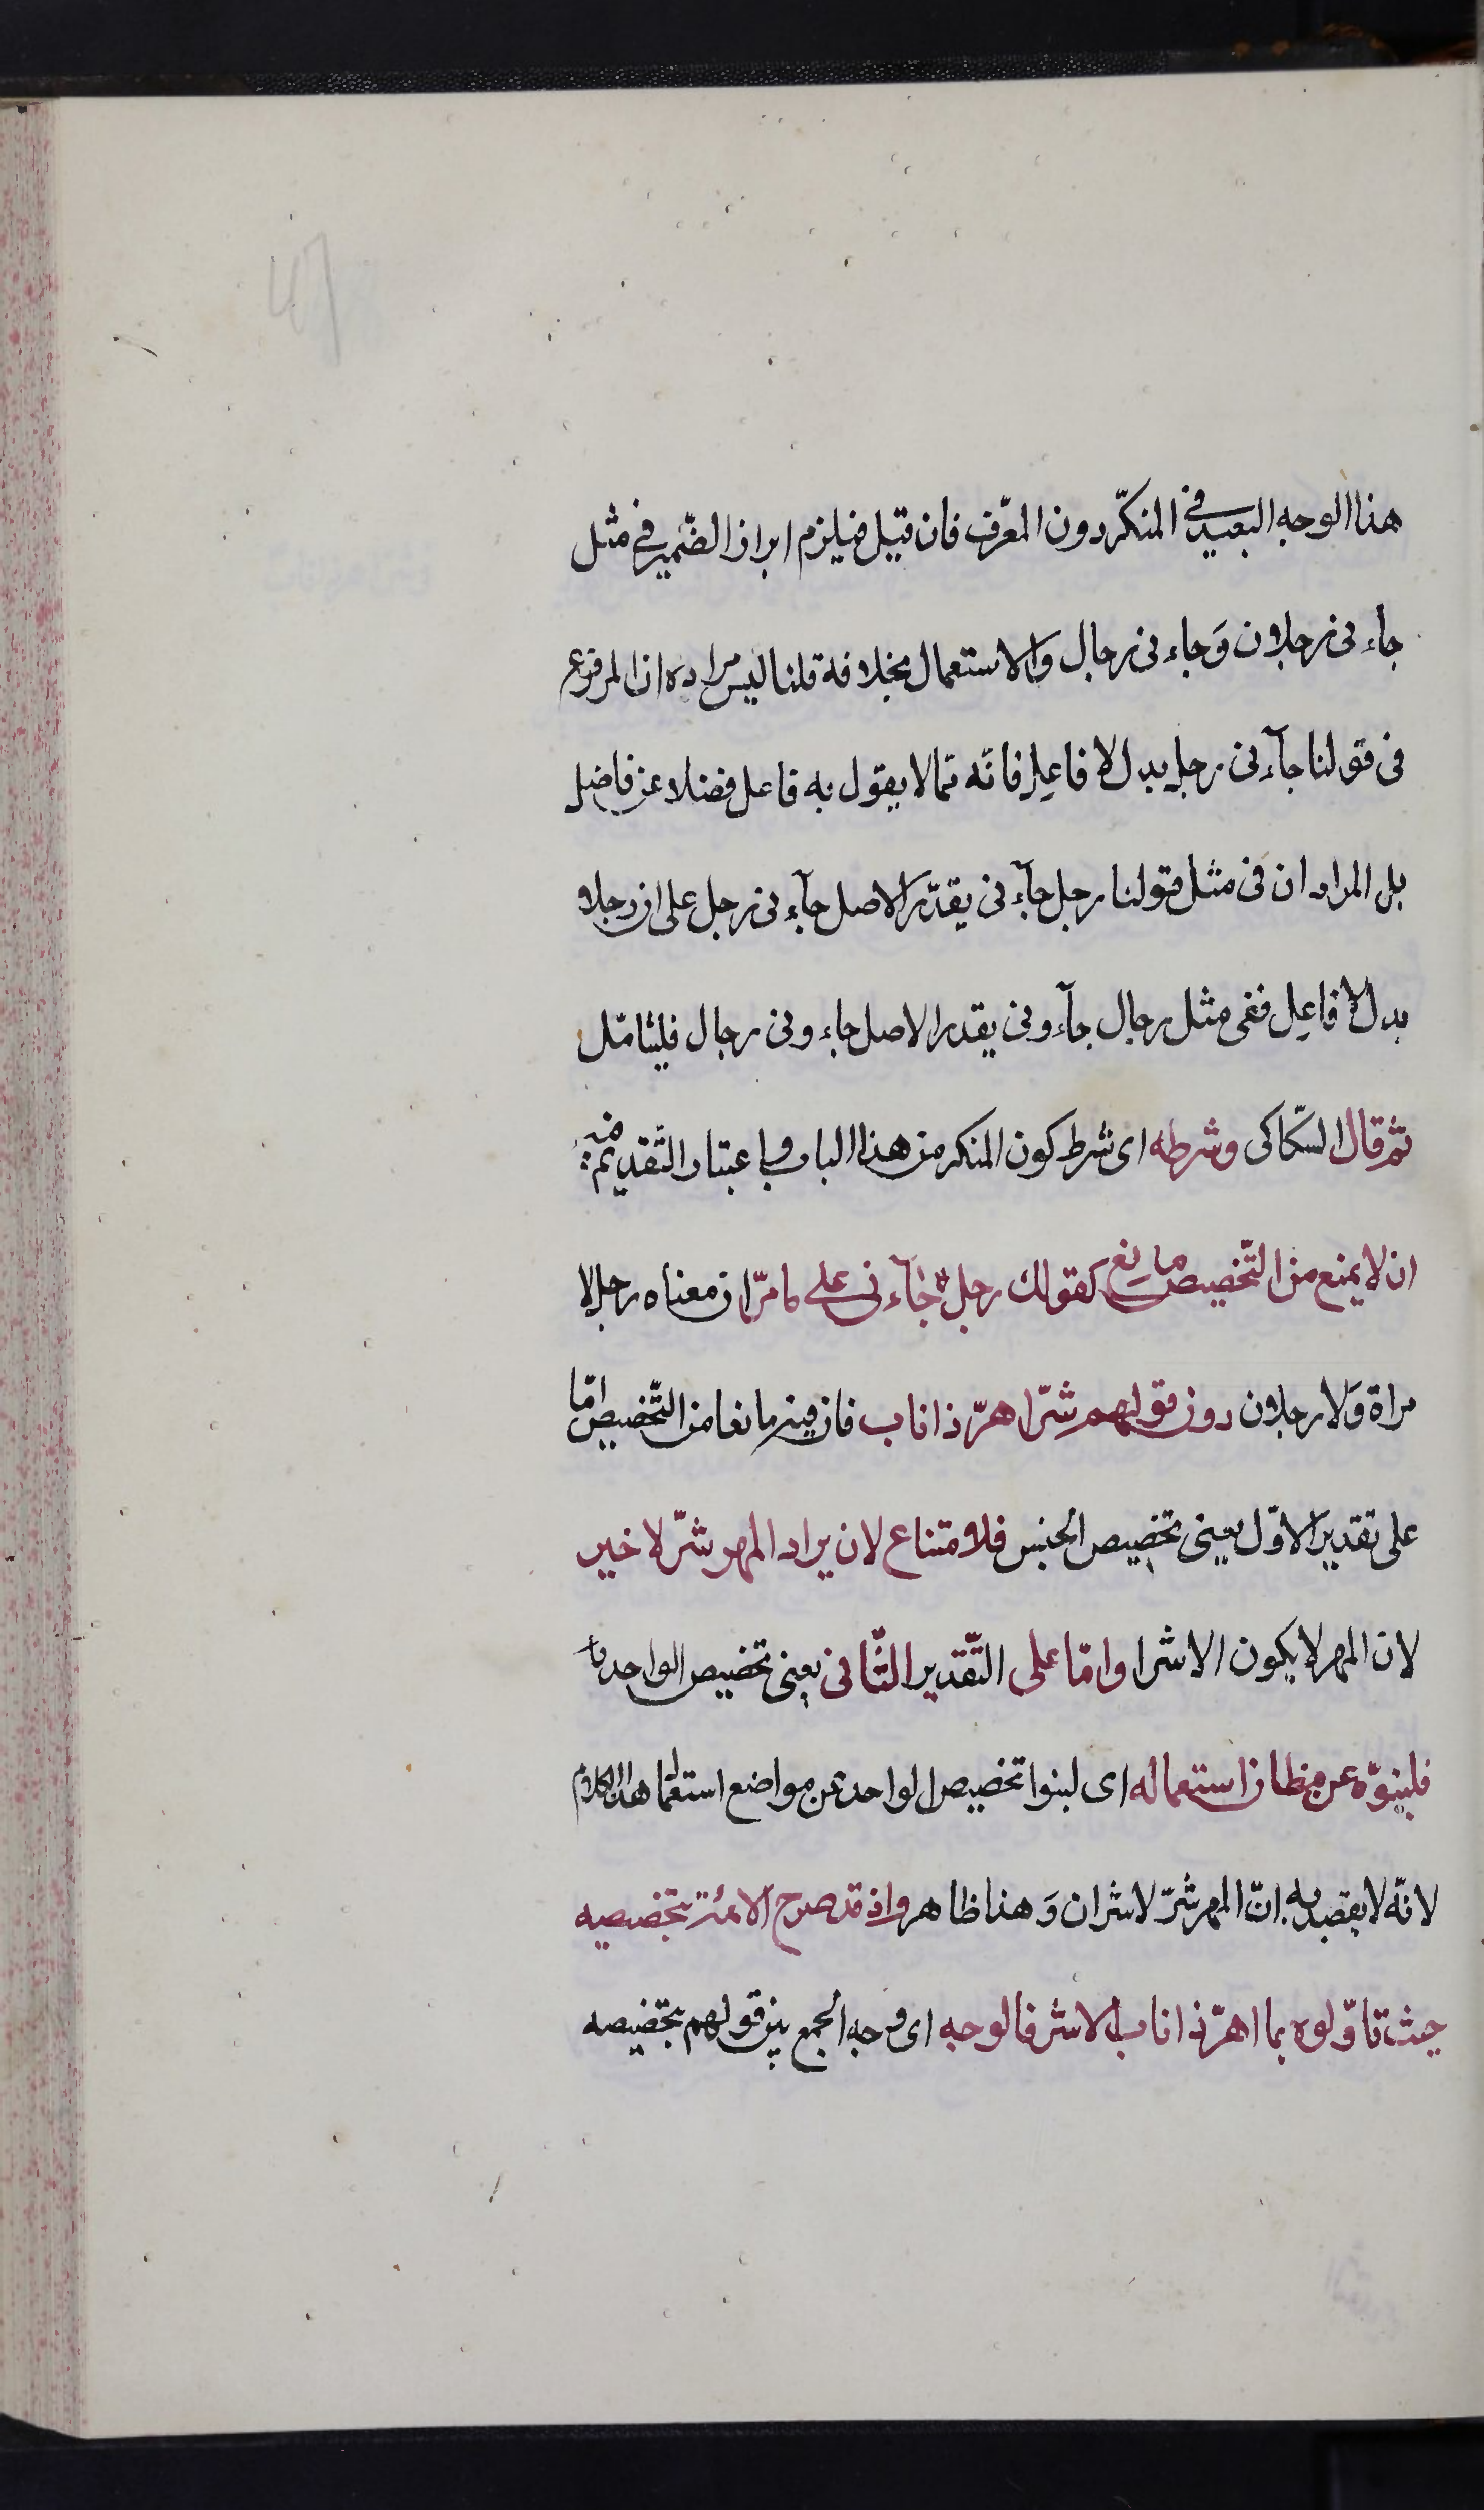 هذا الوجه البعيد في المنكّر دون المعّرف فان قيل فيلزم ابراز الضّمير في مثل
جاء نی رجلان وَجاء نی رجال والاستعمال بخلافه قلنا ليس مراده ان المرفوع
فی قولنا جآء نی رجل بدل لا فاعل فانّه ممّا لا يقول به فاعل فضلا عن فاضل
بل المراد ان فی مثل قولنا رجل جآء نی يقدّر الاصل جآء نی رجل علی ان رجلا
بدل لا فاعل ففی مثل رجال جآء ونی يقدر الاصل جاء ونی رجال فليتامّل
ثم قال السّكاكی وشرطه ای شرط كون المنكر من هذا الباب و باعتبار التّقديم فيه
ان لا يمنع من التّخصيص مانع كقولك رجل جآء نی علی ما مرّ ان معناه رجل لا
مراة وَلا رجلان دون قولهم شرّ اهرّ ذا ناب فان فيه مانعا من التّخصيص امّا
علی تقدير الاوّل يعنی تخصيص الجنس فلامتناع لان يراد المهر شرّ لا خير
لان المهر لا يكون الا شرا وامّا علی التّقدير الثّانی يعنی تخصيص الواحد
فلينوّه عن مظان استعماله ای لبنوا تخصيص الواحد عن مواضع استعمال هذا الكلام
لانّه لا يقصد به انّ المهر شرّ لا شران وَهذا ظاهر واذ قد صرح الائمّة بتخصيصه
حيث تاوّلوه بما اهرّ ذا ناب الا شر فالوجه ای وجه الجمع بين قولهم بتخصيصه